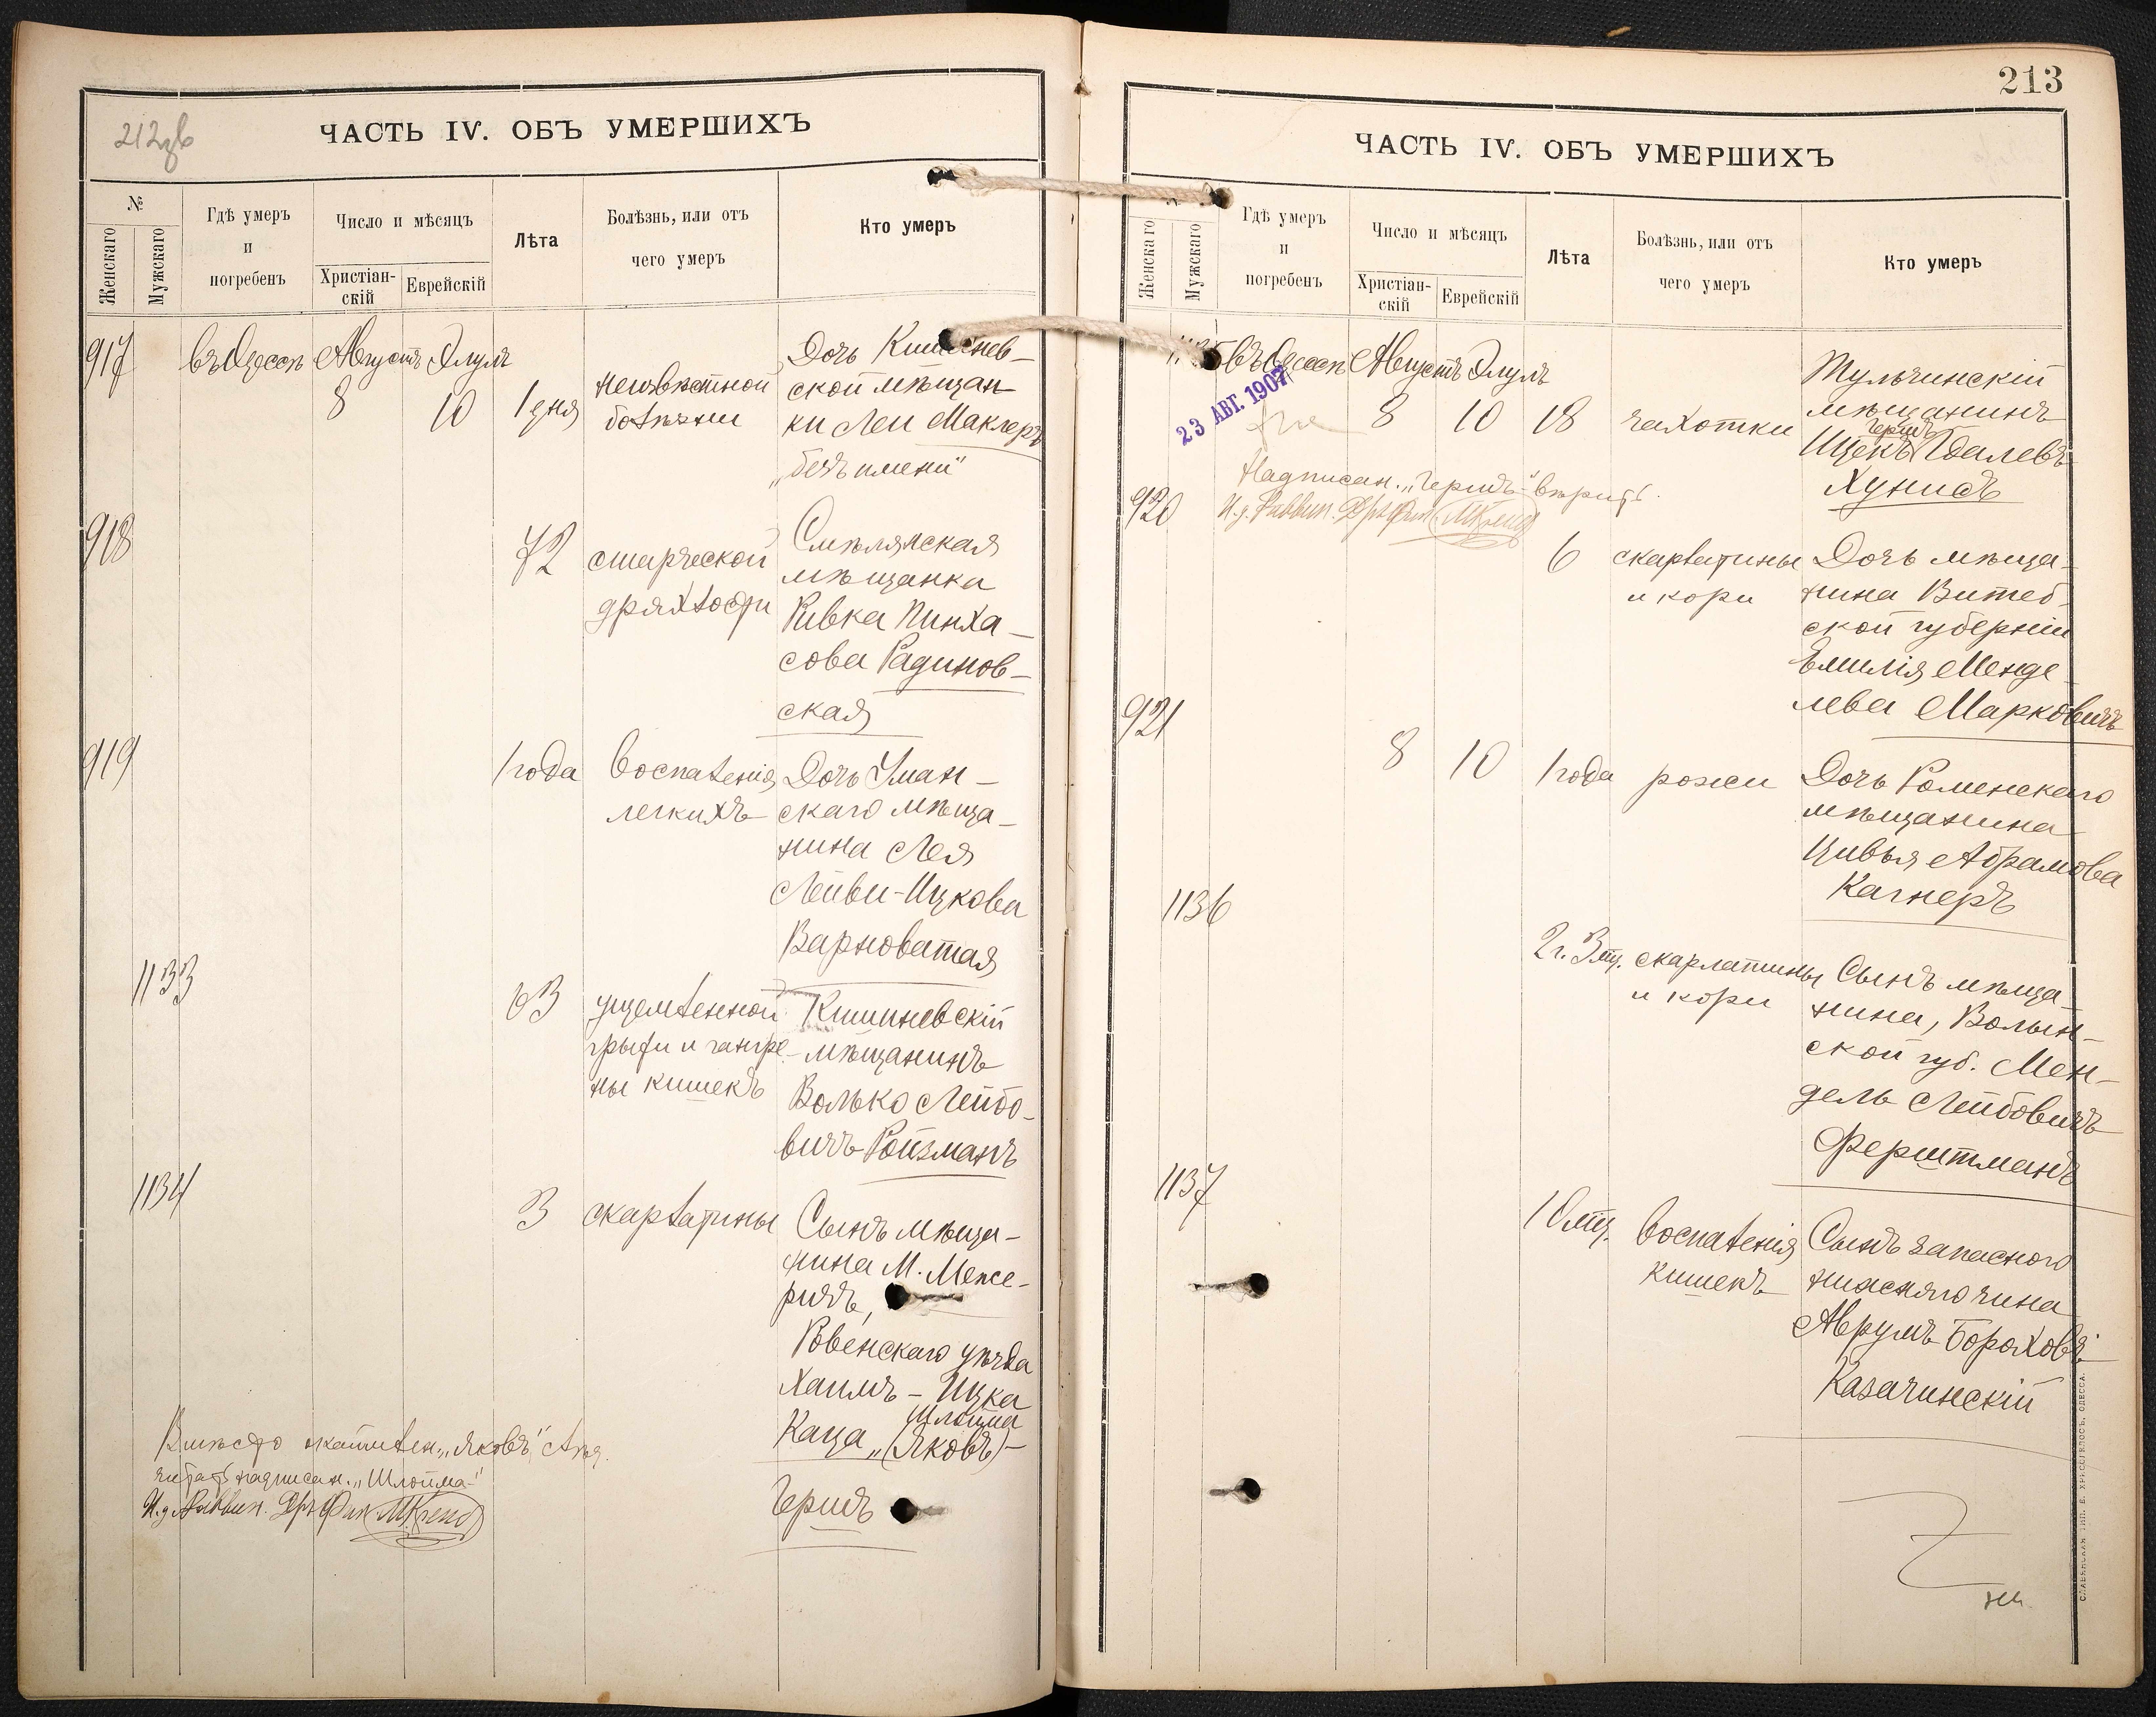 212 об
ЧАСТЬ IV. ОБЪ УМЕРШИХЪ
№
Женскаго
Мужскаго
Гдѣ умеръ
и
погребенъ
Число и мѣсяцъ
Христіан-
скій
Еврейскій
Лѣта
Болѣзнь, или отъ
чего умеръ
Кто умеръ
917 въ Одессѣ Августъ Элулъ
8 10 1 дня
неизвѣстной
болѣзни
Дочь Кишинев-
ской мѣщан-
ки Леи Маклеръ
„безъ имени"
918
72 старческой
дряхлости
Смѣлянская
мѣщанка
Ривка Пинха-
сова Радинов-
ская
919
1 года воспаленія
легкихъ
Дочь Уман-
скаго мѣща-
нина Лея
Лейви-Ицкова
Варноватая
1133
63 ущемленной
грыжи и гангре-
ны кишекъ
Кишиневскій
мѣщанинъ
Волько Лейбо-
вичъ Ройзманъ
1134
3 скарлатины
Сынъ мѣща-
нина М. Меже-
ричъ,
Ровенскаго уѣзда
Хаимъ-Ицка
Шлойма
Каца „(Яковъ)-
Гершъ
Вмѣсто „Яковъ"
читать надписан. „Шлойма"
И.д. Раввин.
213
ЧАСТЬ IV. ОБЪ УМЕРШИХЪ
Женскаго
Мужскаго
Гдѣ умеръ
и
погребенъ
Число и мѣсяцъ
Христіан-
скій
Еврейскій
Лѣта
Болѣзнь, или отъ
чего умеръ
Кто умеръ
1135 въ Одессѣ Августъ Элулъ
8 10 18 чахотки
23 АВГ. 1907
Тульчинскій
мѣщанинъ
Гершъ
Ицекъ Гдалевъ
Хунисъ
Надписан. „Гершъ" вѣрить.
И.д. Раввин.
920
6 скарлатины
и кори
Дочь мѣща-
нина Витеб-
ской губерніи
Эмилія Менде-
лева Марковичъ
921
8 10 1 года рожи
Дочь Роменскаго
мѣщанина
Цивья Абрамова
Кагнеръ
1136
2 г. 3 мц. скарлатины
и кори
Сынъ мѣща-
нина, Волын-
ской губ. Мен-
дель Лейбовичъ
Ферштманъ
1137
10 мц. воспаленія
кишекъ
Сынъ запасного
нижняго чина
Аврумъ Бороховъ
Казачинскій
СЛАВЯНСКАЯ ТИП. Е. ХРИСОГЕЛОСЪ. ОДЕССА.